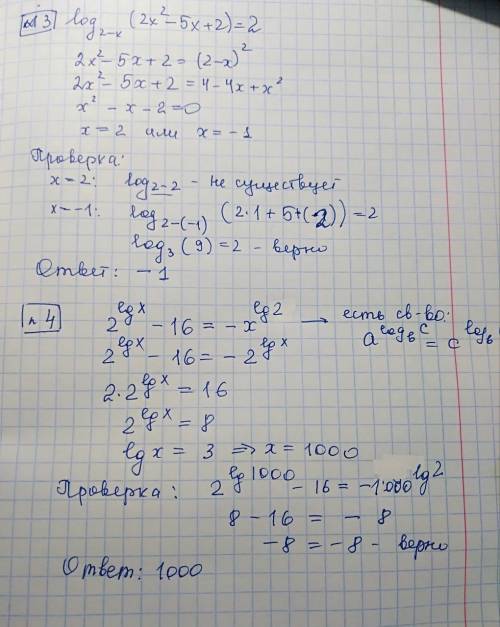 №3 log₂₋ₓ (2x²-5x+2)=2
2x²-5x+2=(2-x)²
2x²-5x+2=4-4x+x²
x²-x-2=0
x=2 или x=-1
Проверка:
x=2: log₂₋₂ - не существует
x=-1: log₂₋₍₋₁₎ (2·1+5+(2))=2
log₃(9)=2 - верно
Ответ: -1
№4 2^lgx - 16 = -x^lg2 → есть св-во:
2^lgx - 16 = -2^lgx a^log_b c = c^log_b
2·2^lgx = 16
2^lgx = 8
lgx = 3 ⇒ x=1000
Проверка: 2^lg1000 - 16 = -1000^lg2
8-16 = -8
-8 = -8 - верно
Ответ: 1000